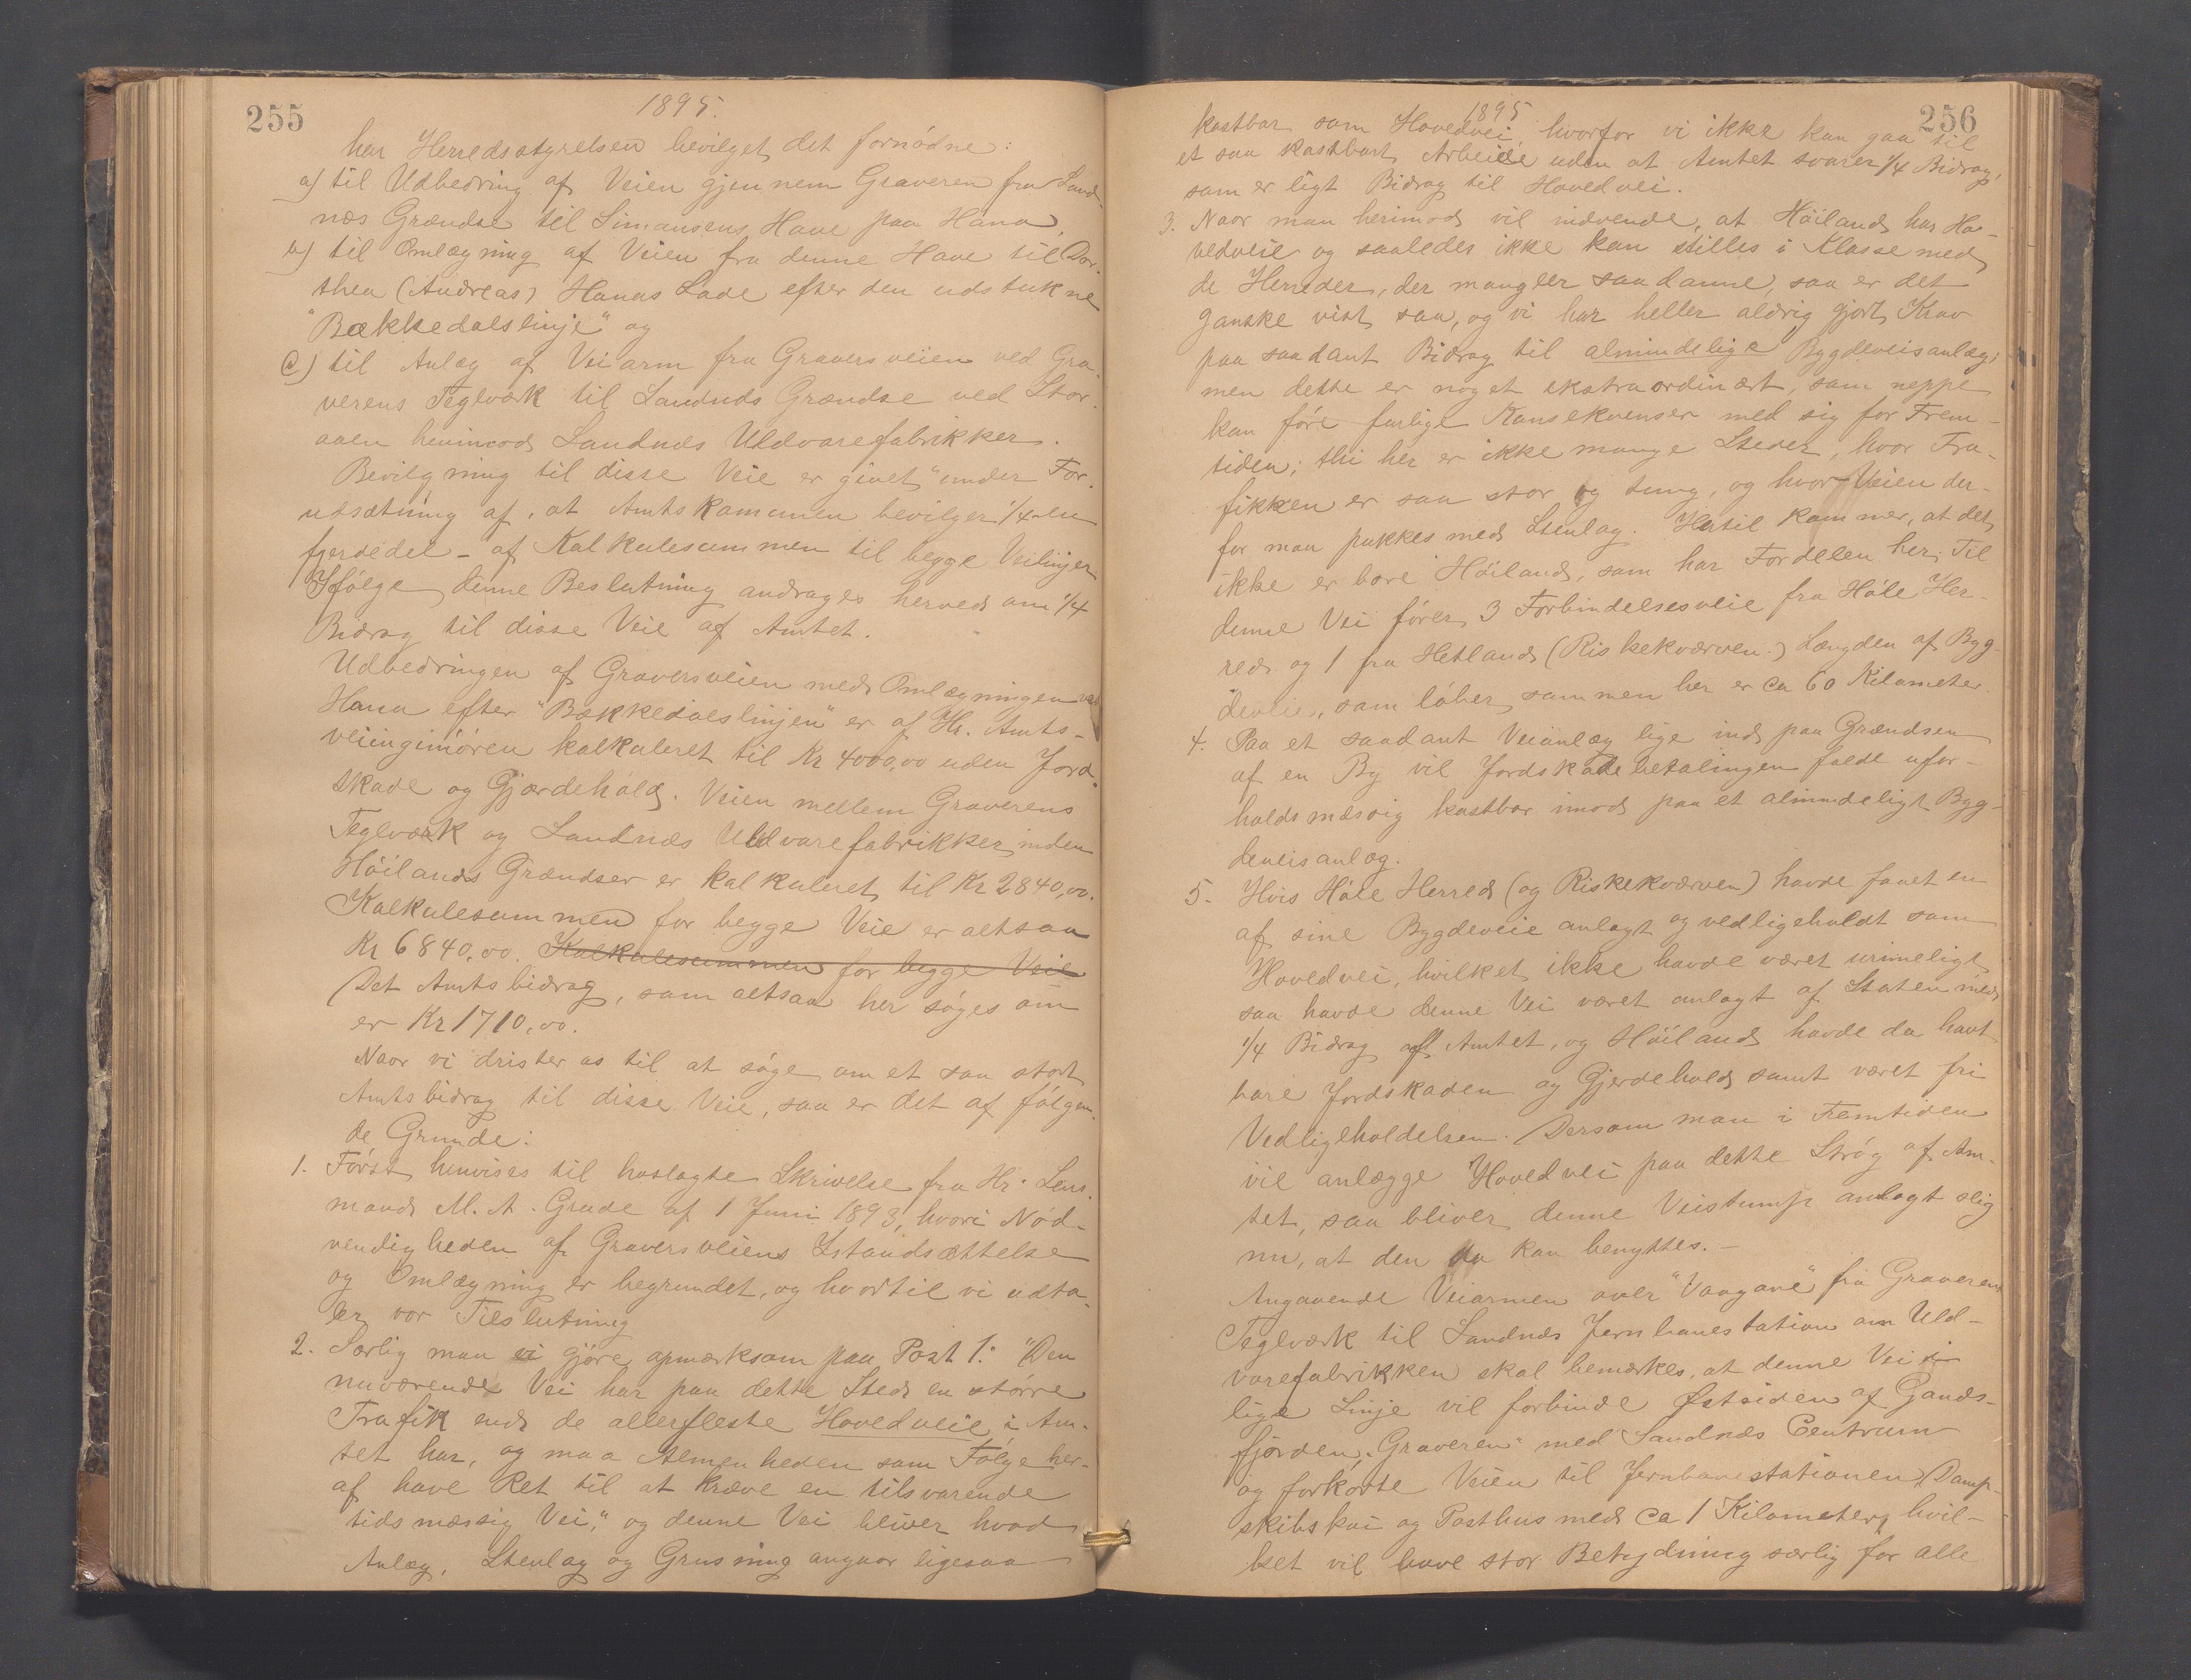 255
1895.
har Herredsstyrelsen bevilget det fornødne:
a) til Udbedring af Veien gjennem Graveren fra Sand-
næs Grændse til Simansens Have paa Hana,
b) til Omlægning af Veien fra denne Have til Dor-
thea (Andreas) Hanas Lade efter den udstukne
"Bækkedalslinje" og
c) til Anlæg af Veiarm fra Graversveien ved Gra-
verens Teglværk til Sandnæs Grændse ved Stor-
aaen henimod Sandnæs Uldvarefabrikker.
Bevilgning til disse Veie er givet "under For-
udsætning af, at Amtskommunen bevilger 1/4-en
fjerdedel- af Kalkulesummen til begge Veilinjer
Ifølge denne Beslutning andrages herved om 1/4
Bidrag til disse Veie af Amtet.
Udbedringen af Graversveien med Omlægningen ved
Hana efter "Bækkedalslinjen" er af Hr. Amts-
veiinginiøren kalkuleret til Kr 4000,00 uden Jord-
skade og Gjærdehold. Veien mellem Graverens
Teglværk og Sandnæs Uldvarefabrikker inden
Høilands Grændser er kalkuleret til Kr 2840,00.
Kalkulesummen for begge Veie er altsaa
Kr 6840,00. Kalkulesummen for begge Veie
Det Amtsbidrag, som altsaa her søges om
er Kr 1710,00.
Naar vi drister os til at søge om et saa stort
Amtsbidrag til disse Veie, saa er det af følgen-
de Grunde:
1. Først henvises til hoslagte Skrivelse fra Hr. Lens-
mand M. A. Grude af 1 Juni 1893, hvori Nød-
vendigheden af Graversveiens Istandsættelse
og Omlægning er begrundet, og hvortil vi udta-
ler vor Tilslutning
2. Særlig maa vi gjøre opmærksom paa Post 1: "Den
nuværende Vei har paa dette Sted en større
Trafik end de allerfleste Hovedveie i Am-
tet har, og maa Almenheden som Følge her-
af have Ret til at kræve en tilsvarende
tidsmæssig Vei," og denne Vei bliver hvad
Anlæg, Stenlag og Grusning angaar ligesaa
256
1895
kostbar som Hovedvei, hvorfor vi ikke kan gaa til
et saa kostbart Arbeide uden at Amtet svarer 1/4 Bidrag,
som er ligt Bidrag til Hovedvei.
3. Naar man herimod vil indvende, at Høiland har Ho-
vedveie og saaledes ikke kan stilles i Klasse med
de Herreder, der mangler saadanne, saa er det
ganske vist saa, og vi har heller aldrig gjort Krav
paa saadant Bidrag til almindelige Bygdeveisanlæg;
men dette er noget ekstraordinært, som neppe
kan føre farlige Konsekvenser med sig for Frem-
tiden; thi her er ikke mange Steder, hvor Tra-
fikken er saa stor og tung, og hvor Veien der-
for maa pukkes med Stenlag. Hertil kommer, at det
ikke er bare Høiland, som har Fordelen her. Til
denne Vei fører 3 Forbindelsesveie fra Høle Her-
red og 1 fra Hetland (Riskekværven.) Længden af Byg-
deveie, som løber sammen her er ca 60 Kilometer.
4. Paa et saadant Veianlæg lige ind paa Grændsen
af en By vil Jordskadebetalingen falde ufor-
holdsmæssig kostbar imod paa et almindeligt Byg-
deveisanlæg.
5. Hvis Høle Herred (og Riskekværven) havde faaet en
af sine Bygdeveie anlagt og vedligeholdt som
Hovedvei, hvilket ikke havde været urimeligt,
saa havde denne Vei været anlagt af Staten med
1/4 Bidrag af Amtet, og Høiland havde da havt
bare Jordskaden og Gjerdehold samt været fri
Vedligeholdelsen. Dersom man i Fremtiden
vil anlægge Hovedvei paa dette Strøg af Am-
tet, saa bliver denne Veistump anlagt slig
nu, at den da kan benyttes.-
Angaaende Veiarmen over "Vaagane" fra Graverens
Teglværk til Sandnæs Jernbanestation om Uld-
varefabrikken skal bemærkes, at denne Vei i
lige Linje vil forbinde Østsiden af Gands-
fjorden, "Graveren" med Sandnæs Centrum
og forkorte Veien til Jernbanestationen, Damp-
skibskai og Posthus med ca 1 Kilometer, hvil-
ket vil have stor Betydning særlig for alle